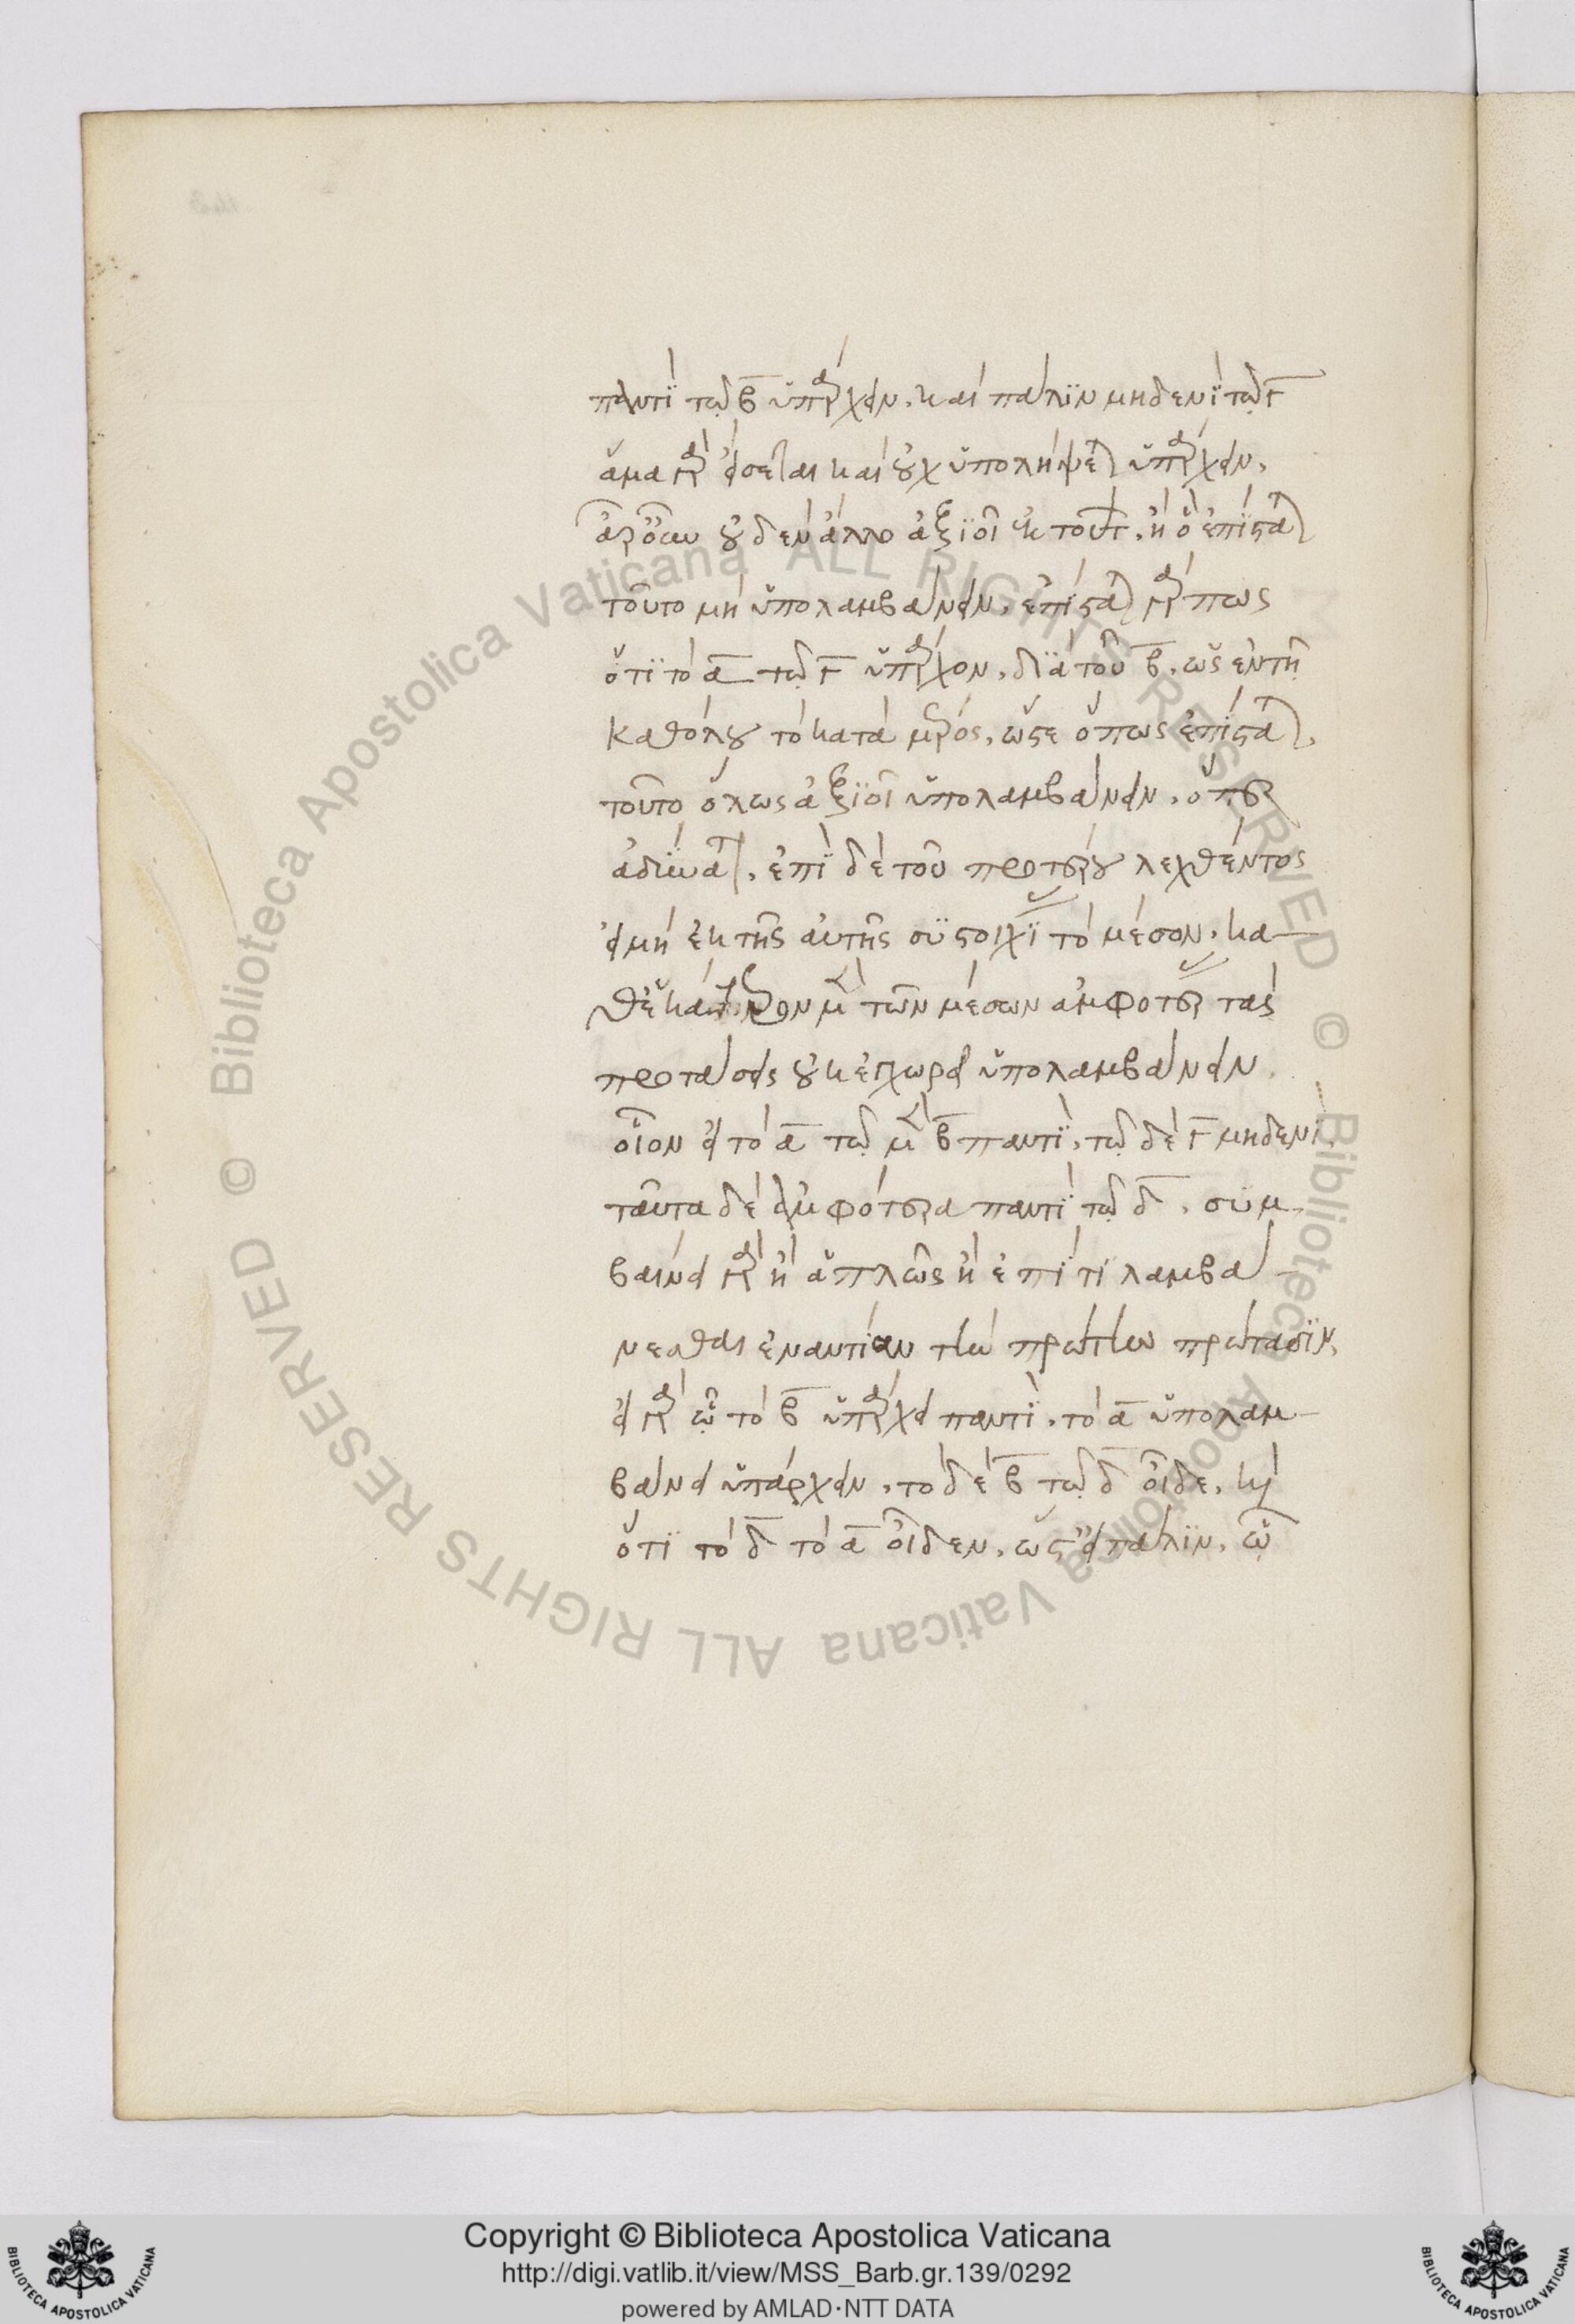 παντὶ τῷ β ὑπάρχειν. καὶ πάλιν μηδενὶ τῷ γ
ἅμα γὰρ εἴσεται καὶ οὐχ ὑπολήψεται ὑπάρχειν.
ἆρ' οὖν οὐδὲν ἄλλο ἀξιοῖ ἐκ τούτ. ἢ ὃ ἐπίσταται
τοῦτο μὴ ὑπολαμβάνειν. ἐπίσταται γάρ πως
ὅτι τὸ α τῷ γ ὑπάρχον. διὰ τοῦ β. ὡς ἐν τῇ
καθόλου τὸ κατὰ μέρος. ὥστε ὅπως ἐπίσταται.
τοῦτο ὅλως ἀξιοῖ ὑπολαμβάνειν. ὅπερ
ἀδύνατον. ἐπὶ δὲ τοῦ προτέρου λεχθέντος
εἰ μὴ ἐκ τῆς αὐτῆς συστοιχίας τὸ μέσον. κα
θ' ἑκάτερον μὲν τῶν μέσων ἀμφοτέρας τὰς
προτάσεις οὐκ ἐγχωρεῖ ὑπολαμβάνειν.
οἷον εἰ τὸ α τῷ μὲν β παντὶ. τῷ δὲ γ μηδενί.
ταῦτα δὲ ἀμφότερα παντὶ τῷ δ. συμ
βαίνει γὰρ ἢ ἁπλῶς ἢ ἐπί τι λαμβά
νεσθαι ἐναντίαν τὴν πρώτην πρώτασιν.
εἰ γὰρ ᾧ τὸ β ὑπάρχει παντὶ. τὸ α ὑπολαμ
βάνει ὑπάρχειν. τὸ δὲ β τῷ δ οἶδε. καὶ
ὅτι τὸ δ τὸ α οἶδεν. ὥστ' εἰ πάλιν. ᾧ
Copyright © Biblioteca Apostolica Vaticana
http://digi.vatlib.it/view/MSS_Barb.gr.139/0292
powered by AMLAD·NTT DATA
BIBLIOTECA APOSTOLICA VATICANA
BIBLIOTECA APOSTOLICA VATICANA
© Biblioteca Apostolica Vaticana ALL RIGHTS RESERVED
© Biblioteca Apostolica Vaticana ALL RIGHTS RESERVED